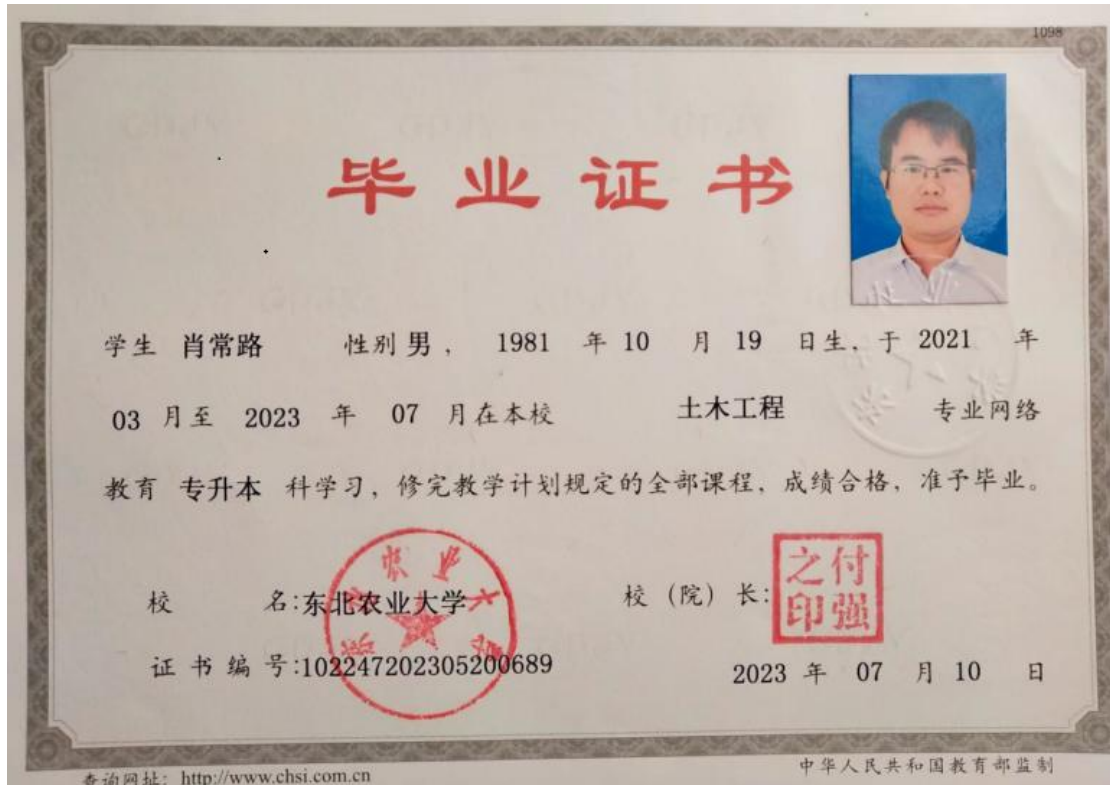 1098
毕业证书
学生 肖常路 性别 男 ， 1981 年 10 月 19 日生，于 2021 年
03 月至 2023 年 07 月在本校 土木工程 专业网络
教育 专升本 科学习，修完教学计划规定的全部课程，成绩合格，准予毕业。
校 名:东北农业大学
校（院）长:
付强之印
证书编号:102247202305200689
2023 年 07 月 10 日
查询网址：http://www.chsi.com.cn
中华人民共和国教育部监制